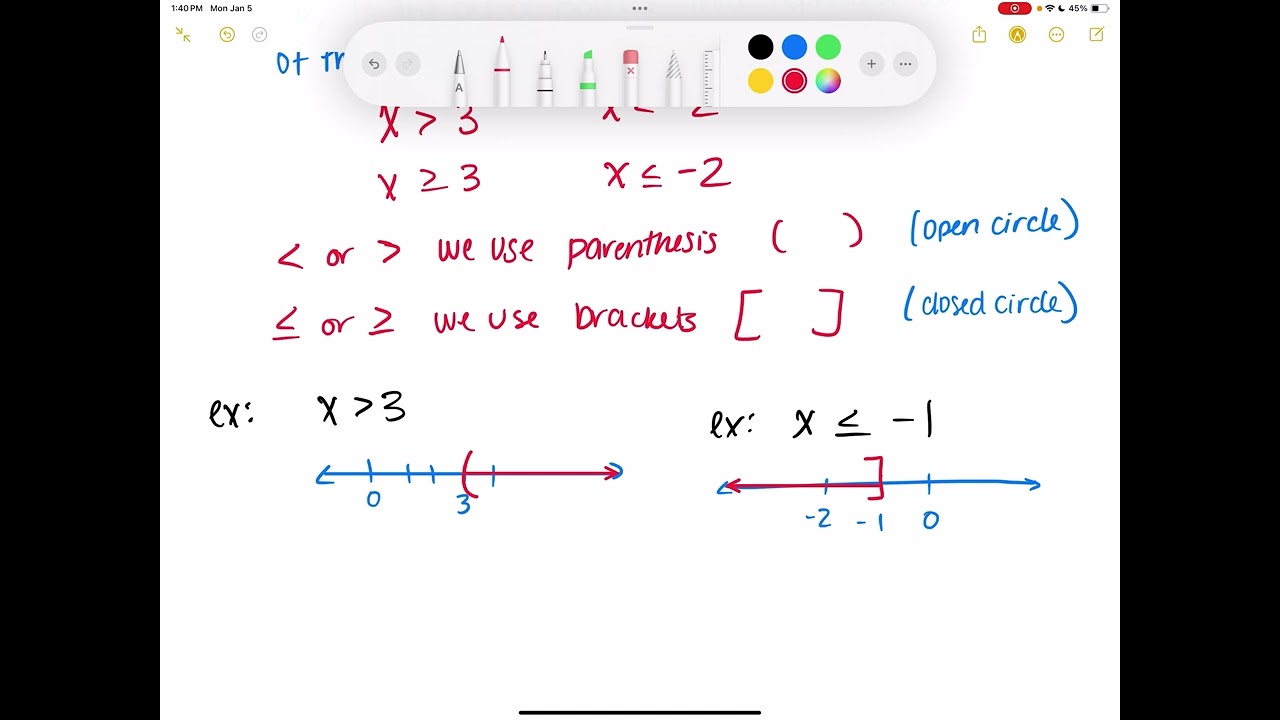 1:40 PM Mon Jan 5
45%
of
A
x > 3
x ≥ 3 x ≤ -2
< or > we use parenthesis ( ) (open circle)
≤ or ≥ we use brackets [ ] (closed circle)
ex: x > 3 ex: x ≤ -1
0 3
-2 -1 0